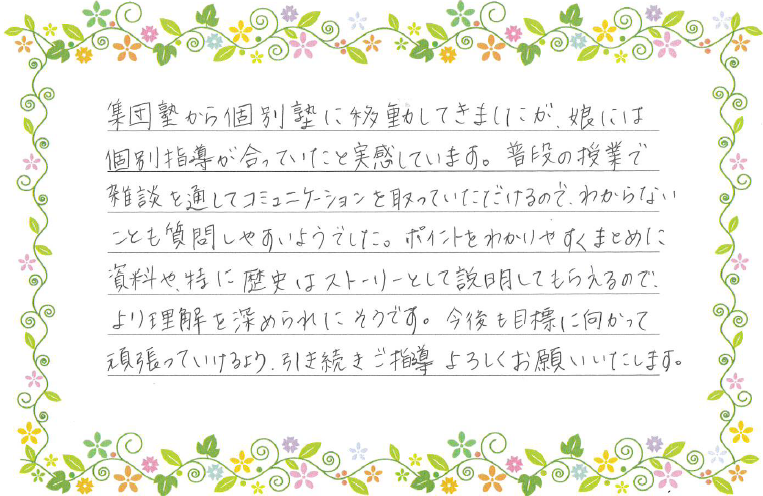 集団塾から個別塾に移動してきましたが、娘には
個別指導が合っていたと実感しています。普段の授業で
雑談を通してコミュニケーションを取っていただけるので、わからない
ことも質問しやすいようでした。ポイントをわかりやすくまとめた
資料や、特に歴史はストーリーとして説明してもらえるので、
より理解を深められたそうです。今後も目標に向かって
頑張っていけるよう、引き続きご指導よろしくお願いいたします。